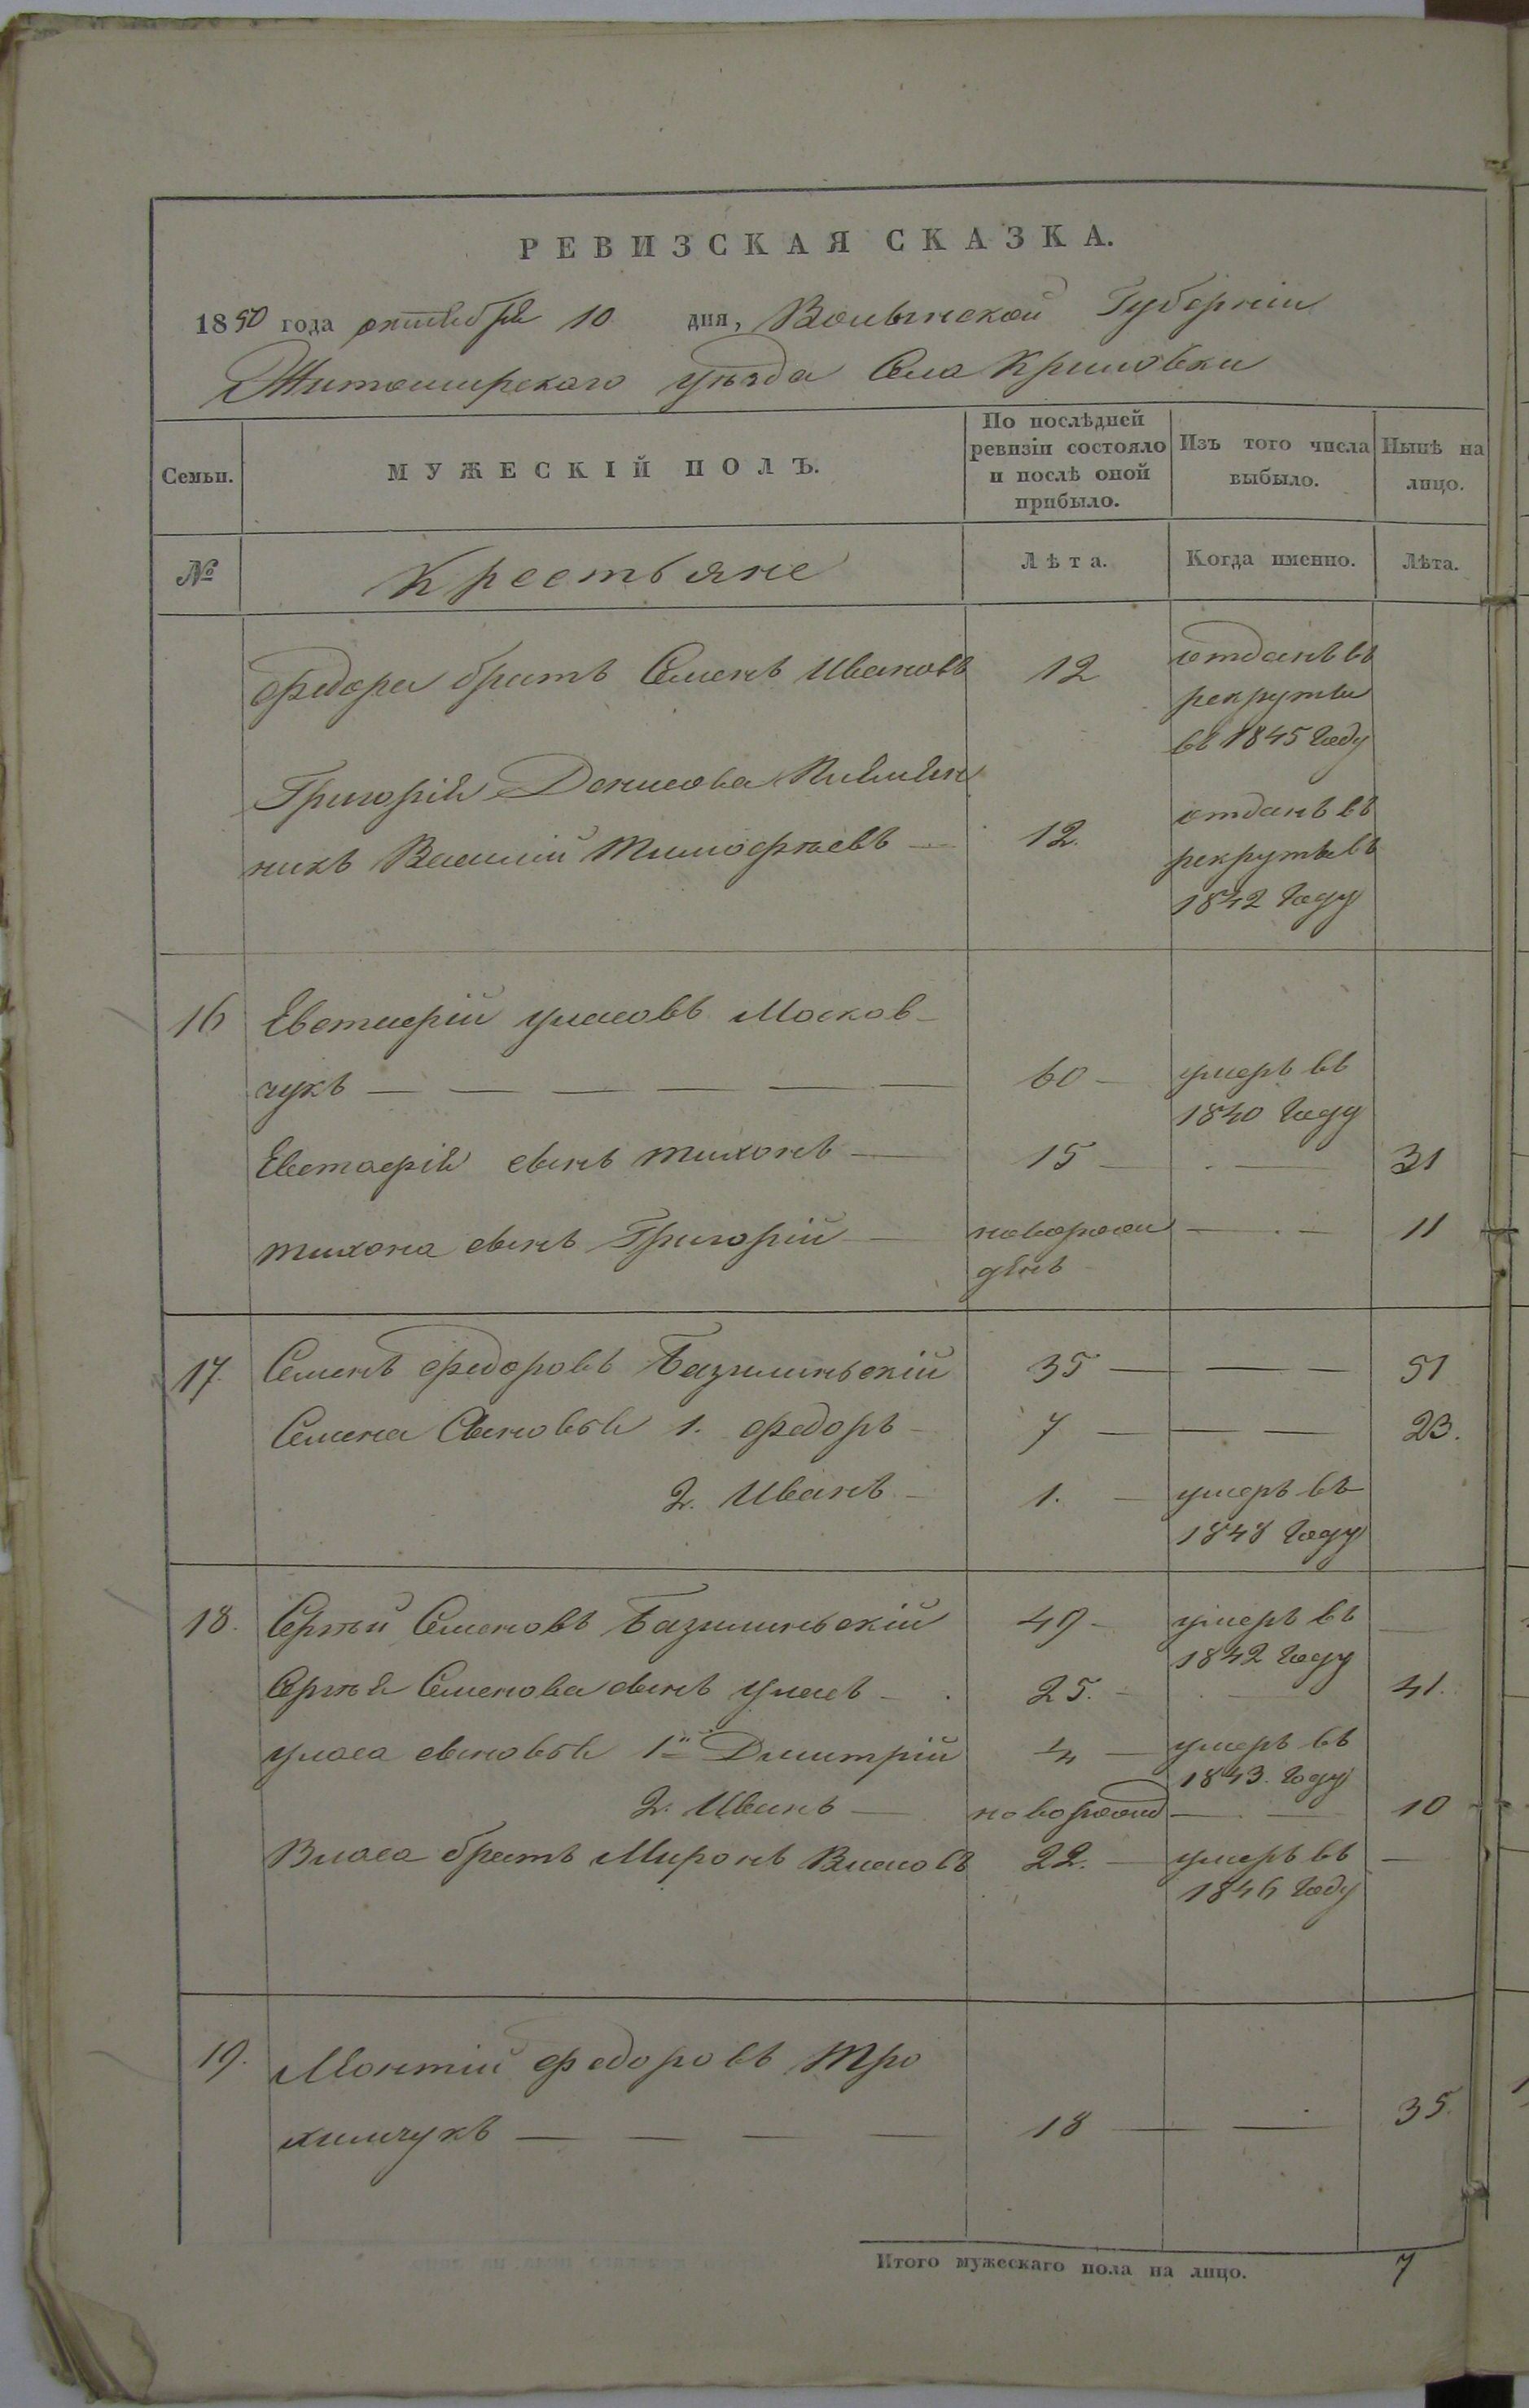 РЕВИЗСКАЯ СКАЗКА.
1850 года октября 10 дня, Волынской Губерніи
Житомирскаго уѣзда Села Криловки
Семьи.
МУЖЕСКІЙ ПОЛЪ.
По послѣдней
ревизіи состояло
и послѣ оной
прибыло.
Изъ того числа
выбыло.
Нынѣ на
лицо.
№
Крестьяне
Лѣта.
Когда именно.
Лѣта.
Федора братъ Семенъ Ивановъ 12 отданъ въ
рекруты
въ 1845 Году
Григорія Денисова Племян
никъ Василій Тимофѣевъ — 12. отданъ въ
рекруты въ
1842 Году
16 Евстафій Уласовъ Москов-
чукъ — — — — — — 60 — умеръ въ
1840 Году
Евстафія сынъ Тихонъ — 15 — — 31
Тихона сынъ Григорій — новорож
денъ — — 11
17. Семенъ Федоровъ Базилиньскій 35 — — — 51
Семена Сыновья 1. Федоръ — 7 — — — 23.
2. Иванъ — 1. — умеръ въ
1848 Году
18. Сергѣй Семеновъ Базилиньскій 49 — умеръ въ —
1842 Году
Сергѣя Семенова сынъ Уласъ — 25. — — 41.
Уласа сыновья 1й Дмитрій 4 — умеръ въ
1843. Году
2. Иванъ — новорожд — — 10
Власа братъ Миронъ Власовъ 22. — умеръ въ —
1846 Году
19. Леонтій Федоровъ Тро
химчукъ — — — — 18 — — 35.
Итого мужескаго пола на лицо. 7